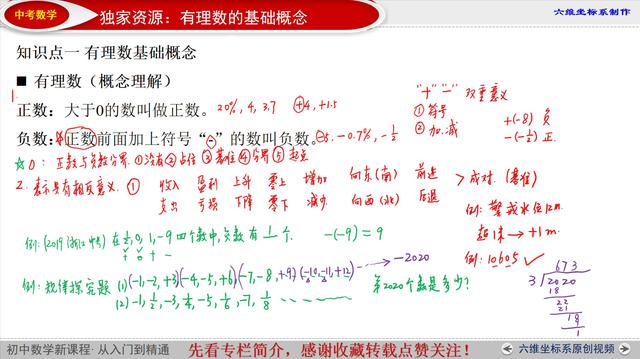 中考数学 独家资源：有理数的基础概念 六维坐标系制作
知识点一 有理数基础概念
■ 有理数（概念理解）
1.
正数：大于0的数叫做正数。 20%, 4, 3.7 +4, +1.5
负数：正数前面加上符号“-”的数叫负数。 -5, -0.7%, -1/2
"+" "-" 双重意义
① 符号 +(-8) 负
② 加.减 -(-1/2) 正
☆0：正数与负数分界. ①没有 ②占位 ③基准 ④分界 ⑤起点
2. 表示具有相反意义. ① 收入 盈利 上升 零上 增加 向东(南) 前进
支出 亏损 下降 零下 减少 向西(北) 后退
> 成对.(基准)
例: 警戒水位12m.
超1米 → +1m.
例: 10605 ✓
例:(2019浙江中考) 在1/2, 0, 1, -9 四个数中,负数有 1 个. -(-9) = 9
+ 0 + -
例: 规律探究题 (1)(-1,-2,+3)(-4,-5,+6)(-7,-8,+9)(-10,-11,+12) → -2020
(2) -1, 1/2, -3, 1/4, -5, 1/6, -7, 1/8 ------
第2020个数是多少?
673
3 2020
18
22
21
1
初中数学新课程· 从入门到精通 先看专栏简介，感谢收藏转载点赞关注！ 六维坐标系原创视频